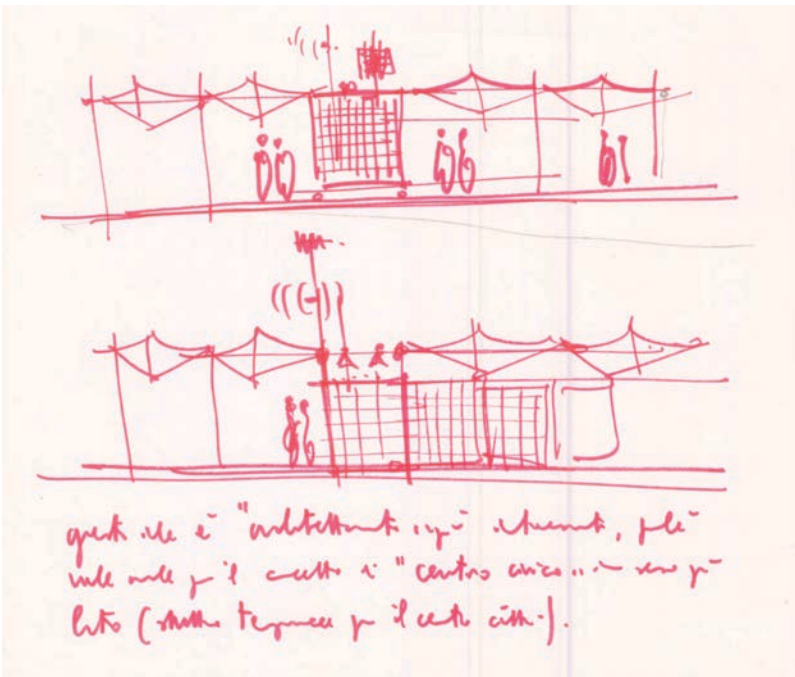 questa idea è "architettonicamente" più interessante, perché
vale anche per il concetto di "centro civico" in senso più
lato (struttura temporanea per il centro città).